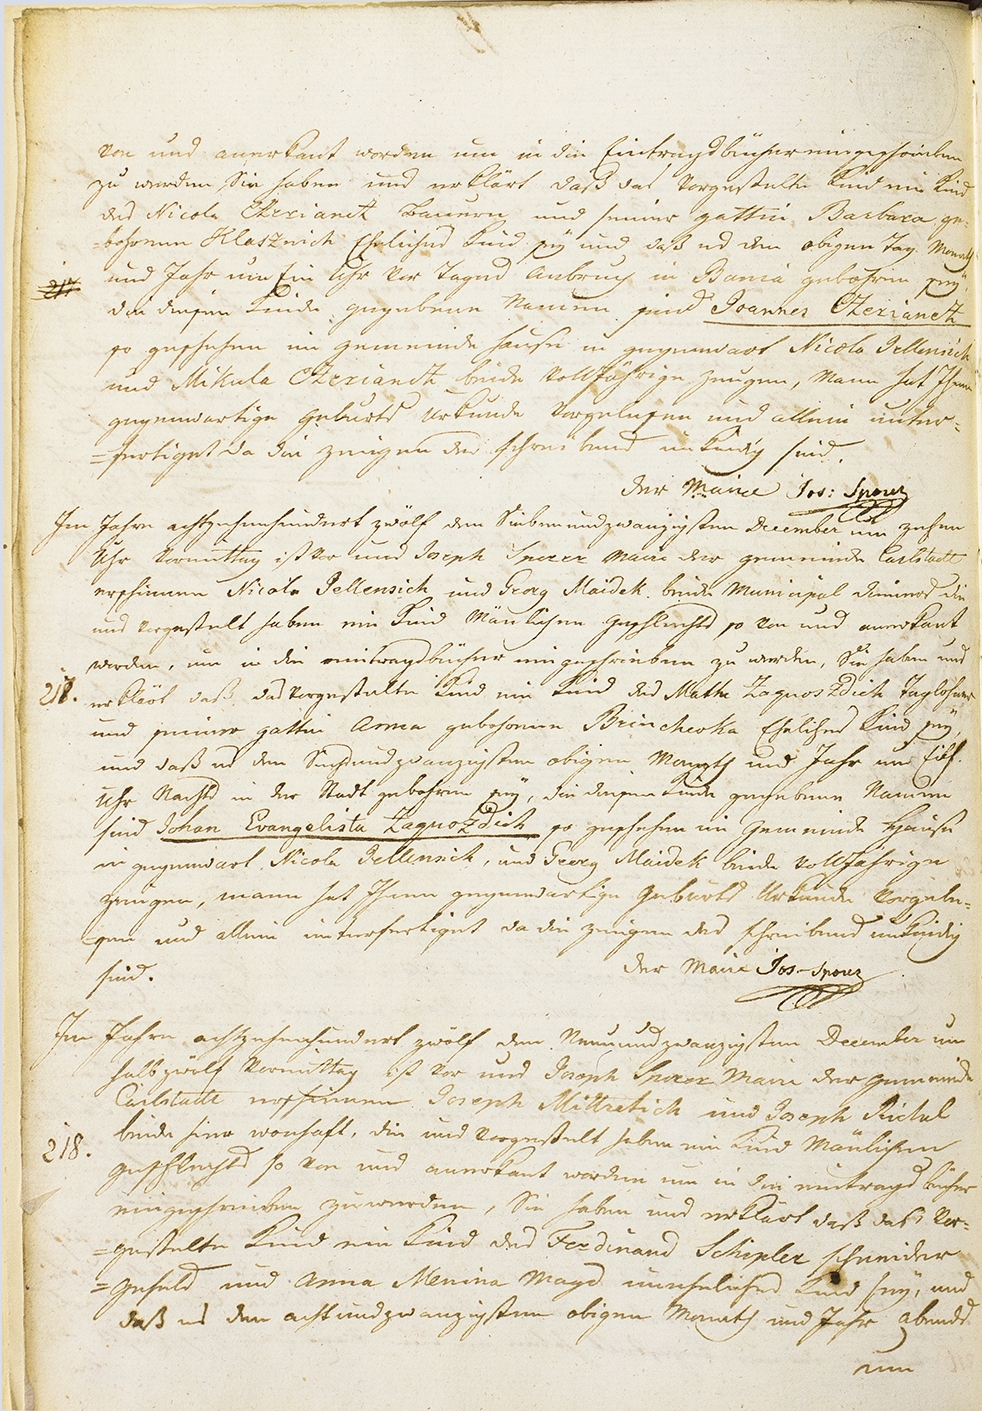 von uns anerkant worden um in die Eintragsbücher eingeschrieben
zu werden, Sie haben uns erklärt daß das vorgestelte Kind ein Kind
des Nicola Czerianetz Bauern und seiner gattin Barbara ge=
=bohrene Klasznich Ehelichs Kind sÿ und daß es den obigen Tag, Monath
und Jahr um Ein Uhr vor Tages Anbruch in Bania gebohren seÿ,
217
die diesem Kinde gegebene Namen sind Joannes Czerianetz
so geschehen im gemeinde hause in gegenwart Nicola Jellensich
und Mikula Czerianetz beide Volljährige zeugen, Mann hat Ihnen
gegenwärtige geburts Urkunde vorgelesen und allein unter=
=fertiget da die zeugen des schreibens unkündig sind.
der Maire Jos: Sporer
Im Jahre achtzehenhundert zwölf den Siebenundzwanzigsten December um zehen
Uhr Vormittag ist vor uns Joseph Sporer Maire der gemeinde Carlstadt
erschienen Nicola Jellensich und Georg Maidek beide Municipal Dieners die
uns vorgestelt haben ein Kind Mänlichen geschlechts so von uns anerkant
worden, um in die eintragsbücher eingeschrieben zu werden, Sie haben uns
217. erklärt daß das vorgestelte Kind ein Kind des Mathe Zagnoszdich Taglöhner
und seiner gattin Anna gebohrene Brincheska Ehelichs Kind seÿ,
und daß es den Sechsundzwanzigsten obigen Monath und Jahr um
Uhr Nachts in der Stadt gebohren seÿ, die diesem Kinde gegebene Namen
sind Johan Evangelista Zagnoszdich so geschehen im Gemeinde Hause
in gegenwart Nicola Jellensich, und Georg Maidek beide volljährige
zeugen, mann hat Ihnen gegenwärtige geburts Urkunde vorgele=
=sen und allein unterfertiget da die zeugen des schreibens unkündig
sind.
der Maire Jos. Sporer
Im Jahre achtzehenhundert zwölf den Neunundzwanzigsten December um
halbzwölf Vormittag ist vor uns Joseph Sporer Maire der gemeinde
Carlstadt erschienen Joseph Miltretich und Joseph Rietal
beide hier wonhaft, die uns vorgestelt haben ein Kind Mänlichen
218.
geschlechts so von uns anerkant worden um in die eintrags bücher
eingeschrieben zu werden, Sie haben uns erklärt daß das vor=
=gestelte Kind ein Kind des Ferdinand Schipler schneider
=gesell und Anna Menina Magd uneheliches Kind seÿ, und
daß es den achtundzwanzigsten obigen Monath und Jahr abends
um